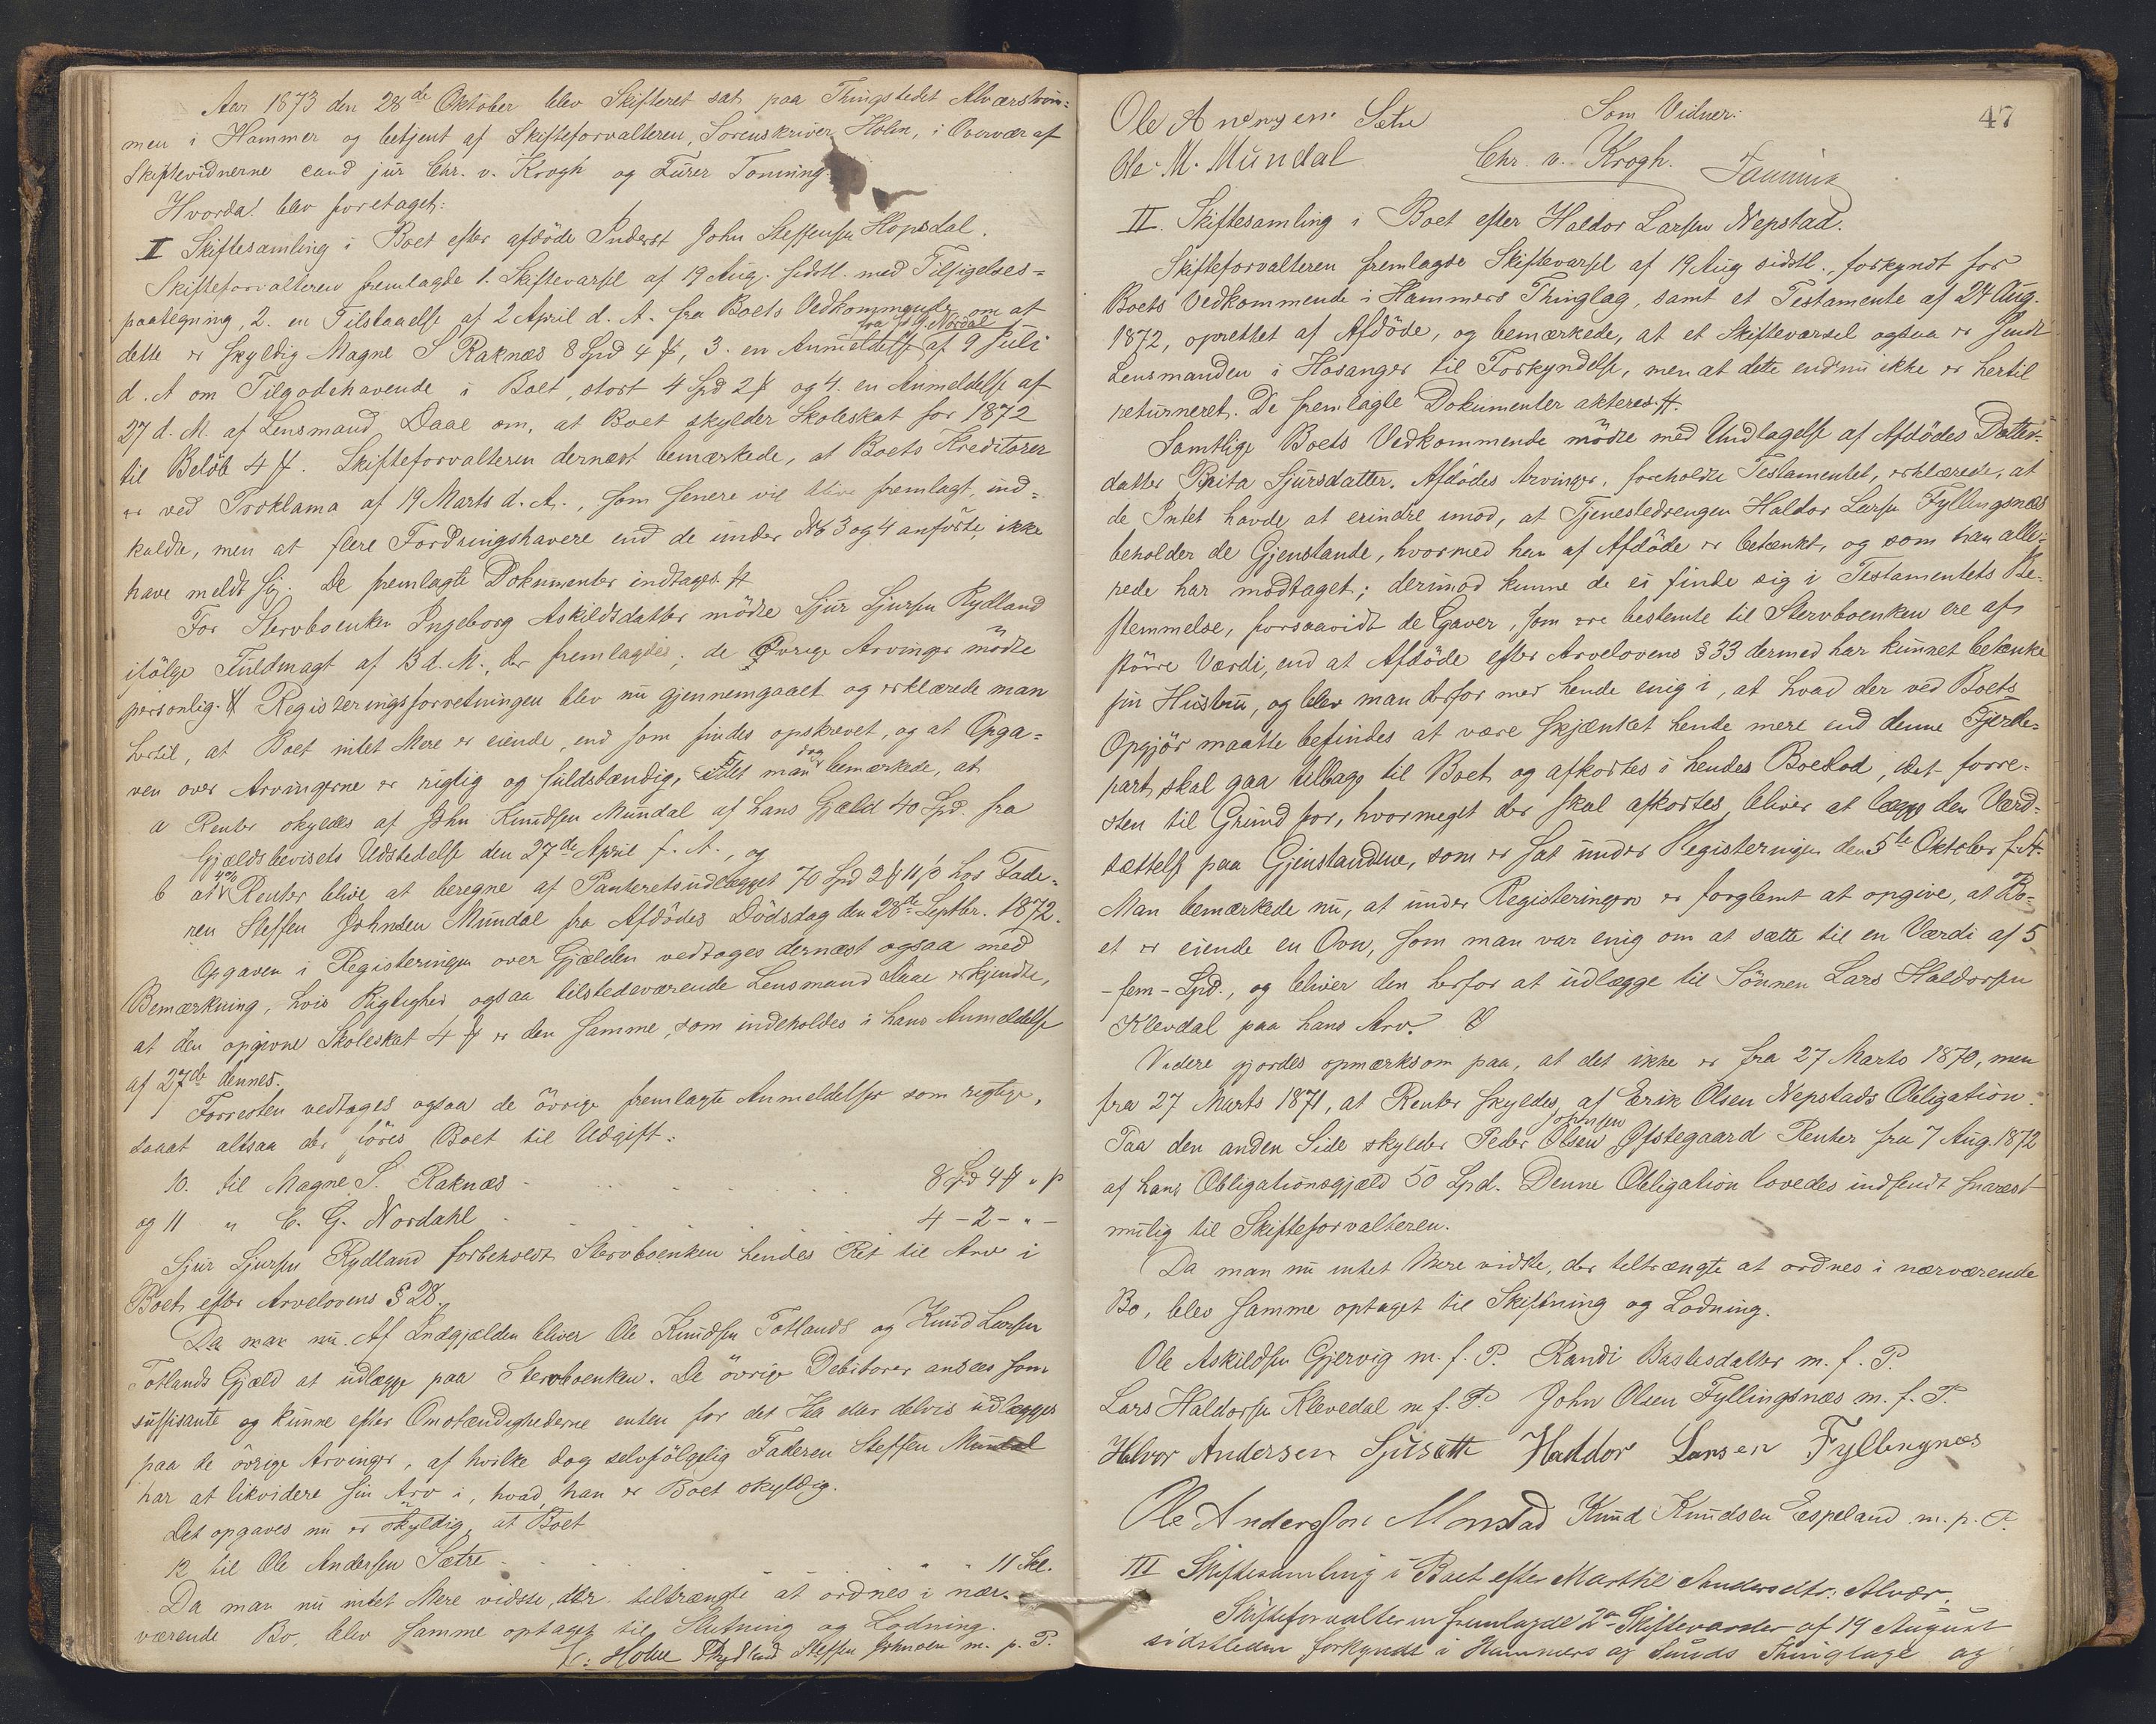 Aar 1873 den 28de Oktober blev Skifteret sat paa Thingstedet Alværström-
men i Hammer og betjent af Skifteforvalteren, Sorenskriver Holm, i Overvær af
Skiftevidnerne cand jur Chr. v. Krogh og Turer Tonning.
Hvorda! blev foretaget:
I Skiftesamling i Boet efter afdöde Inderst John Steffensen Hopsdal.
Skifteforvalteren fremlagde 1. Skiftevarsel af 19 Aug. sidstl. med Tilsigelses-
paategning, 2. en Tilstaaelse af 2 April d. A. fra Boets Vedkommende om at
dette er skyldig Magne S Raknæs 8 Spd 4 ¥, 3. en Anmeldelse fra G. Nordal af 9 Juli
d. A om Tilgodehavende i Boet, stort 4 Spd 2 ¥ og 4. en Anmeldelse af
27 d. M. af Lensmand Daae om, at Boet skylder Skoleskat for 1872
til Belöb 4 ¥. Skifteforvalteren dernæst bemærkede, at Boets Kreditorer
er ved Proklama af 19 Marts d. A., som senere vil blive fremlagt, ind-
kaldte, men at flere Fordringshavere end de under No 3 og 4 anförte, ikke
have meldt sig. De fremlagte Dokumenter indtages #
For Stervboenken Ingeborg Askildsdatter mödte Sjur Sjursen Rydland
ifölge Fuldmagt af 13 d. M., der fremlagdes; de Övrige Arvinger mödte
personlig. # Registeringsforretningen blev nu gjennemgaaet og erklærede man
hertil, at Boet intet Mere er eiende, end som findes opskrevet, og at Opga-
ven over Arvingerne er rigtig og fuldstændig, idet man dog bemærkede, at
a Renter skyldes af John Knudsen Mundal af hans Gjæld 40 Spd. fra
Gjældsbevisets Udstedelse den 27de April f. A., og
b at 4% Renter blive at beregne af Panteretsudlægget 70 Spd 2 ¥ 11 ß hos Fade-
ren Steffen Johnsen Mundal fra Afdödes Dödsdag den 28de Septbr. 1872.
Opgaven i Registeringen over Gjælden vedtoges dernæst ogsaa med
Bemærkning, hvis Rigtighed ogsaa tilstedeværende Lensmand Daae erkjendte,
at den opgivne Skoleskat 4 ¥ er den samme, som indeholdes i hans Anmeldelse
af 27de dennes.
Forresten vedtoges ogsaa de övrige fremlagte Anmeldelser som rigtige,
saaat altsaa der föres Boet til Udgift:
10. til Magne S. Raknæs - 8 Spd 4 ¥ " ß
og 11 " C. G. Nordahl - 4 - 2 - " -
Sjur Sjursen Rydland forbeholdt Stervboenken hendes Ret til Arv i
Boet efter Arvelovens § 28.
Da man nu. Af Indgjælden bliver Ole Knudsen Totlands og Knud Larsen
Totlands Gjæld at udlægge paa Stervboenken. De övrige Debitorer ansees som
suffisante og kunne efter Omstændighederne enten for det Hele eller delvis udlægges
paa de övrige Arvinger, af hvilke dog selvfölgelig Faderen Steffen Mundal
har at likvidere sin Arv i, hvad han er Boet skyldig.
Det opgaves nu er skyldig, at Boet
12 til Ole Andersen Sætre - 11 Skl.
Da man nu intet Mere vidste, der tiltrængte at ordnes i nær-
værende Bo, blev samme optaget til Slutning og Lodning.
Holm Rydland Steffen Johnsen m. p. P.
47
Ole Andersen Sætre Som Vidner:
Ole M. Mundal Chr. v. Krogh. Tonning
II. Skiftesamling i Boet efter Haldor Larsen Nepstad.
Skifteforvalteren fremlagde Skiftevarsel af 19 Aug sidstl., forkyndt for
Boets Vedkommende i Hammers Thinglag, samt et Testamente af 24 Aug.
1872, oprettet af Afdöde, og bemærkede, at et Skiftevarsel ogsaa er sendt
Lensmanden i Hosanger til Forkyndelse, men at dette endnu ikke er hertil
returneret. De fremlagte Dokumenter akteres #.
Samtlige Boets Vedkommende mödte med Undtagelse af Afdödes Datter-
datter Brita Sjursdatter. Afdödes Arvinger, foreholdte Testamentet, erklærede, at
de Intet havde at erindre imod, at Tjenestedrengen Haldor Larsen Fyllingsnæs
beholder de Gjenstande, hvormed han af Afdöde er betænkt, og som han alle-
rede har modtaget; derimod kunne de ei finde sig i Testamentets Be-
stemmelse, forsaavidt de Gaver, som ere bestemte til Stervboenken ere af
större Værdi, end at Afdöde efter Arvelovens § 33 dermed har kunnet betænke
sin Hustru, og blev man derfor med hende enig i, at hvad der ved Boets
Opgjör maatte befindes at være skjænket hende mere end denne Fjerde-
part, skal gaa tilbage til Boet og afkortes i hendes Boeslod, idet forre-
sten til Grund for, hvormeget der skal afkortes, bliver at lægge den Værd-
sættelse paa Gjenstandene, som er sat under Registeringen den 5te Oktober f. A.
Man bemærkede nu, at under Registeringen er forglemt at opgive, at Bo-
et er eiende en Ovn, som man var enig om at sætte til en Værdi af 5
- fem - Spd., og bliver den herfor at udlægge til Sönnen Lars Haldorsen
Klevdal paa hans Arv.
Videre gjordes opmærksom paa, at det ikke er fra 27 Marts 1870, men
fra 27 Marts 1871, at Renter skyldes af Erik Olsen Nepstads Obligation.
Paa den anden Side skylder Peder Olsen Øfstegaard Renter fra 7 Aug. 1872
af hans Obligationsgjæld 50 Spd. Denne Obligation lovedes indsendt snarest
mulig til Skifteforvalteren.
Da man nu intet Mere vidste, der tiltrængte at ordnes i nærværende
Bo, blev samme optaget til Skiftning og Lodning.
Ole Askildsen Gjervig m. f. P. Randi Bastesdatter m. f. P.
Lars Haldorsen Klevedal m. f. P. John Olsen Fyllingsnæs m. f. P.
Halvor Andersen Sjusætt Haddor Larsen Fyllingnæs
Ole Anderssen Monstad Knud Knudsen Espeland m. p. P.
III Skiftesamling i Boet efter Marthe Andersdtr. Alvær.
Skifteforvalteren fremlagde 2de Skiftevarsler af 19 August
sidstleden forkyndt i Hammers og Sunds Thinglage og